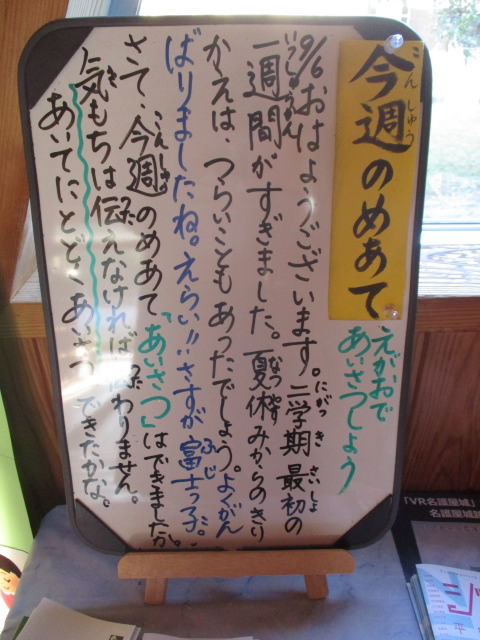 今週のめあて
こんしゅう
えがおで
あいさつしよう
9/6 おはようございます。二学期最初の
にがっき さいしょ
一週間がすぎました。夏休みからのきり
いっしゅうかん
なつやす
かえは、つらいこともあったでしょう。よくがん
ばりましたね。えらい!!さすが富士っ子だ。
ふじ
さて、今週のめあて「あいさつ」はできましたか。
こんしゅう
気もちは伝えなければ伝わりません。
き
つた
つた
あいてにとどくあいさつできたかな。
「VR名護屋城」
名護屋城